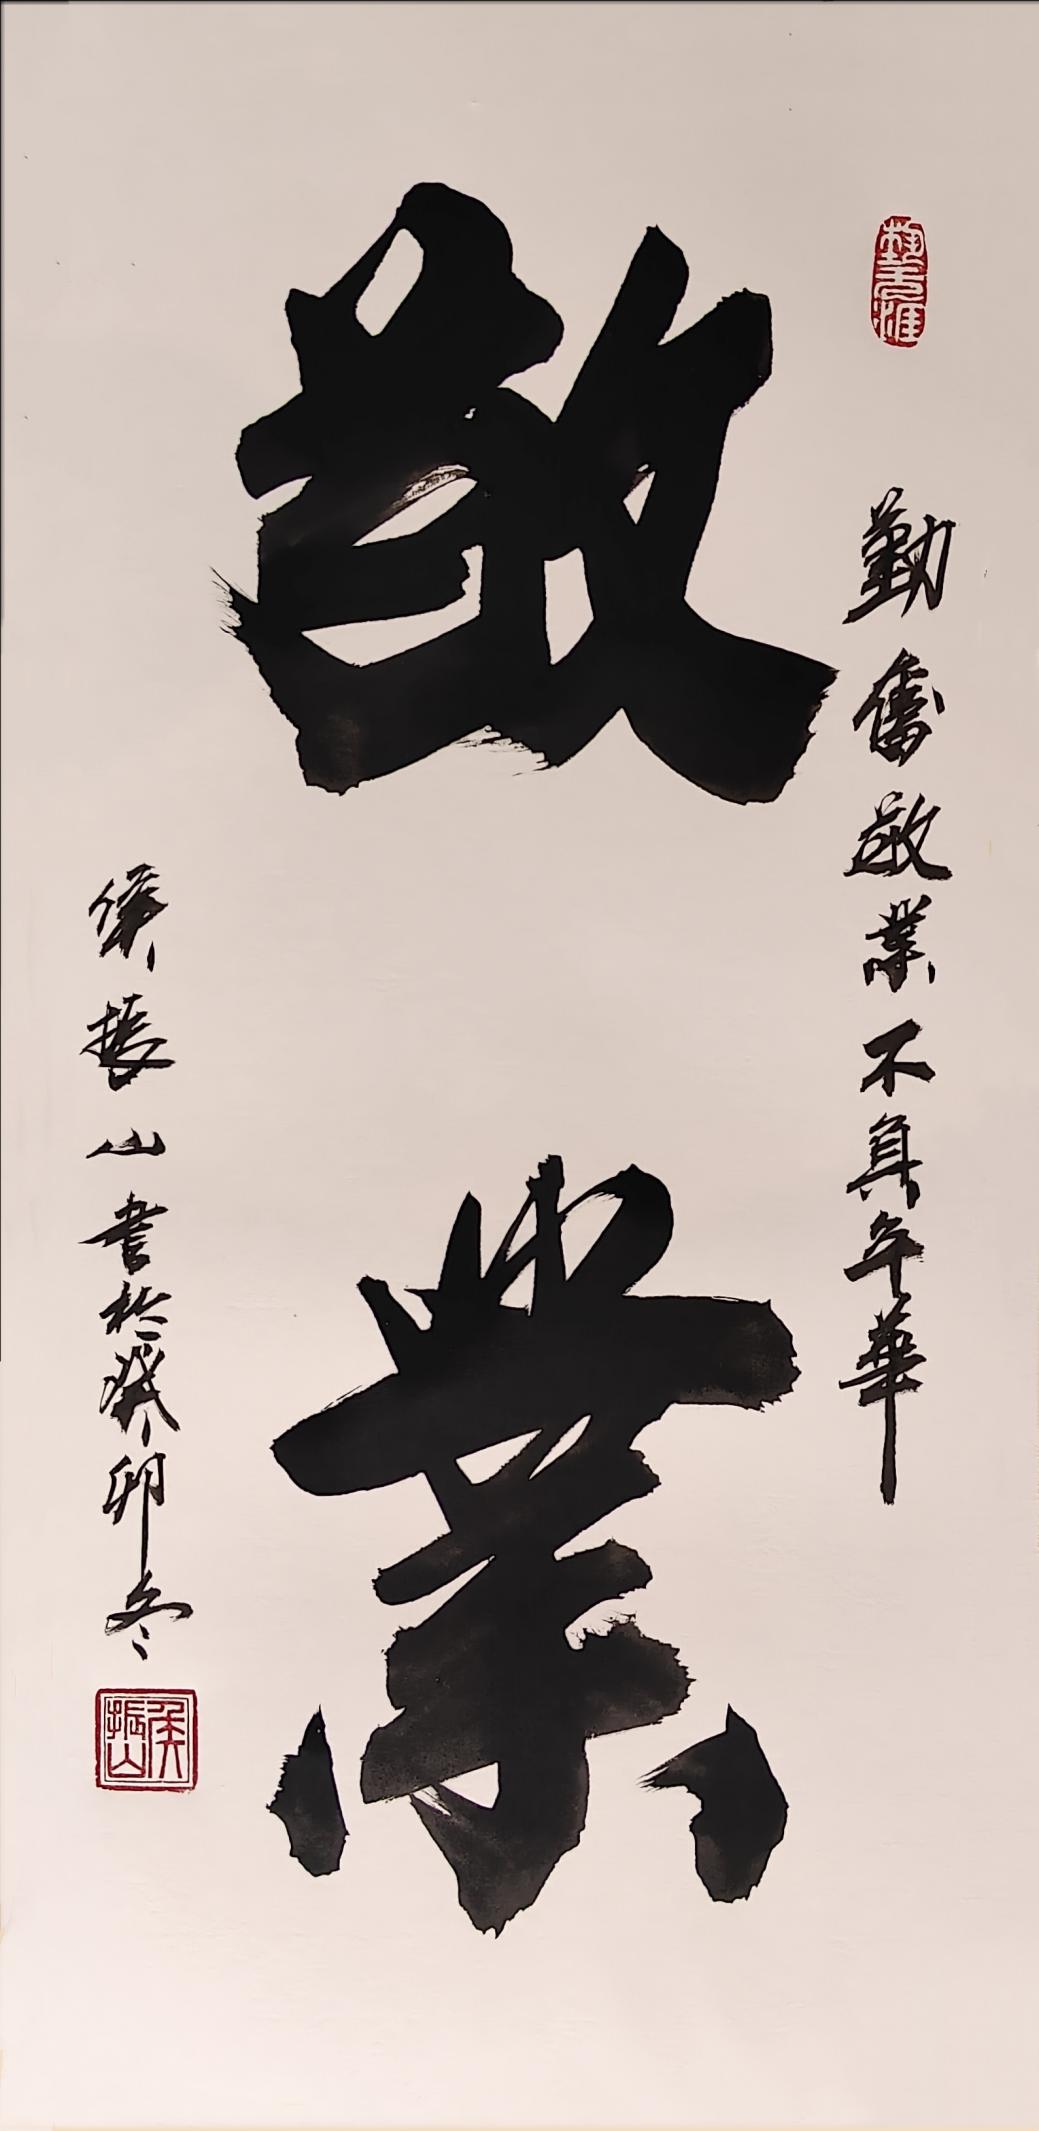 勤奮敬業不負年華
敬業
侯振山書於癸卯冬
侯振山